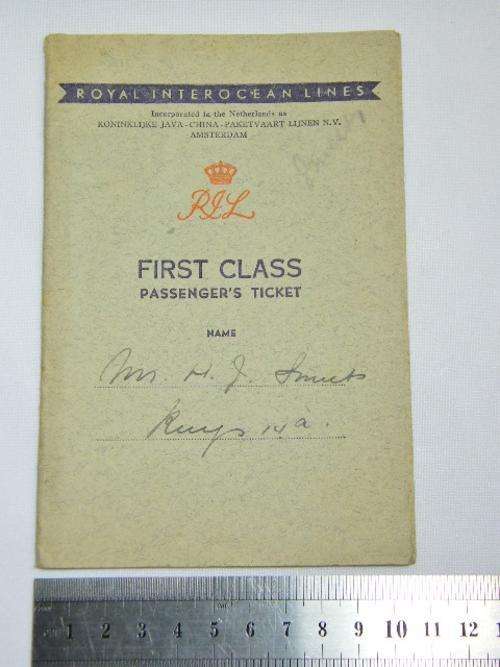 ROYAL INTEROCEAN LINES
Incorporated in the Netherlands as
KONINKLIJKE JAVA-CHINA-PAKETVAART LIJNEN N.V.
AMSTERDAM
RIL
FIRST CLASS
PASSENGER'S TICKET
NAME
Mr. H. J. Smuts
Ruys 14a.
1 2 3 4 5 6 7 8 9 10 11 12